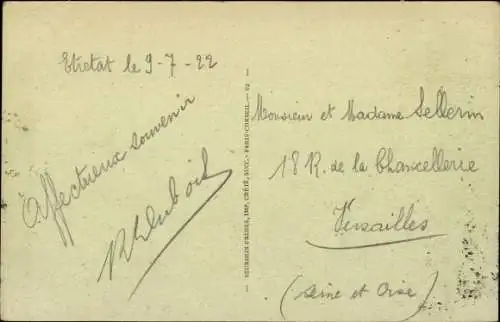 Etretat le 9-7-22
Affectueux souvenir
Monsieur et Madame Sellerin
18 R. de la Chancellerie
Versailles
(Seine et Oise)
NEURDEIN FRÈRES, IMP. CRÉTÉ, SUCC. — PARIS-CORBEIL — 92